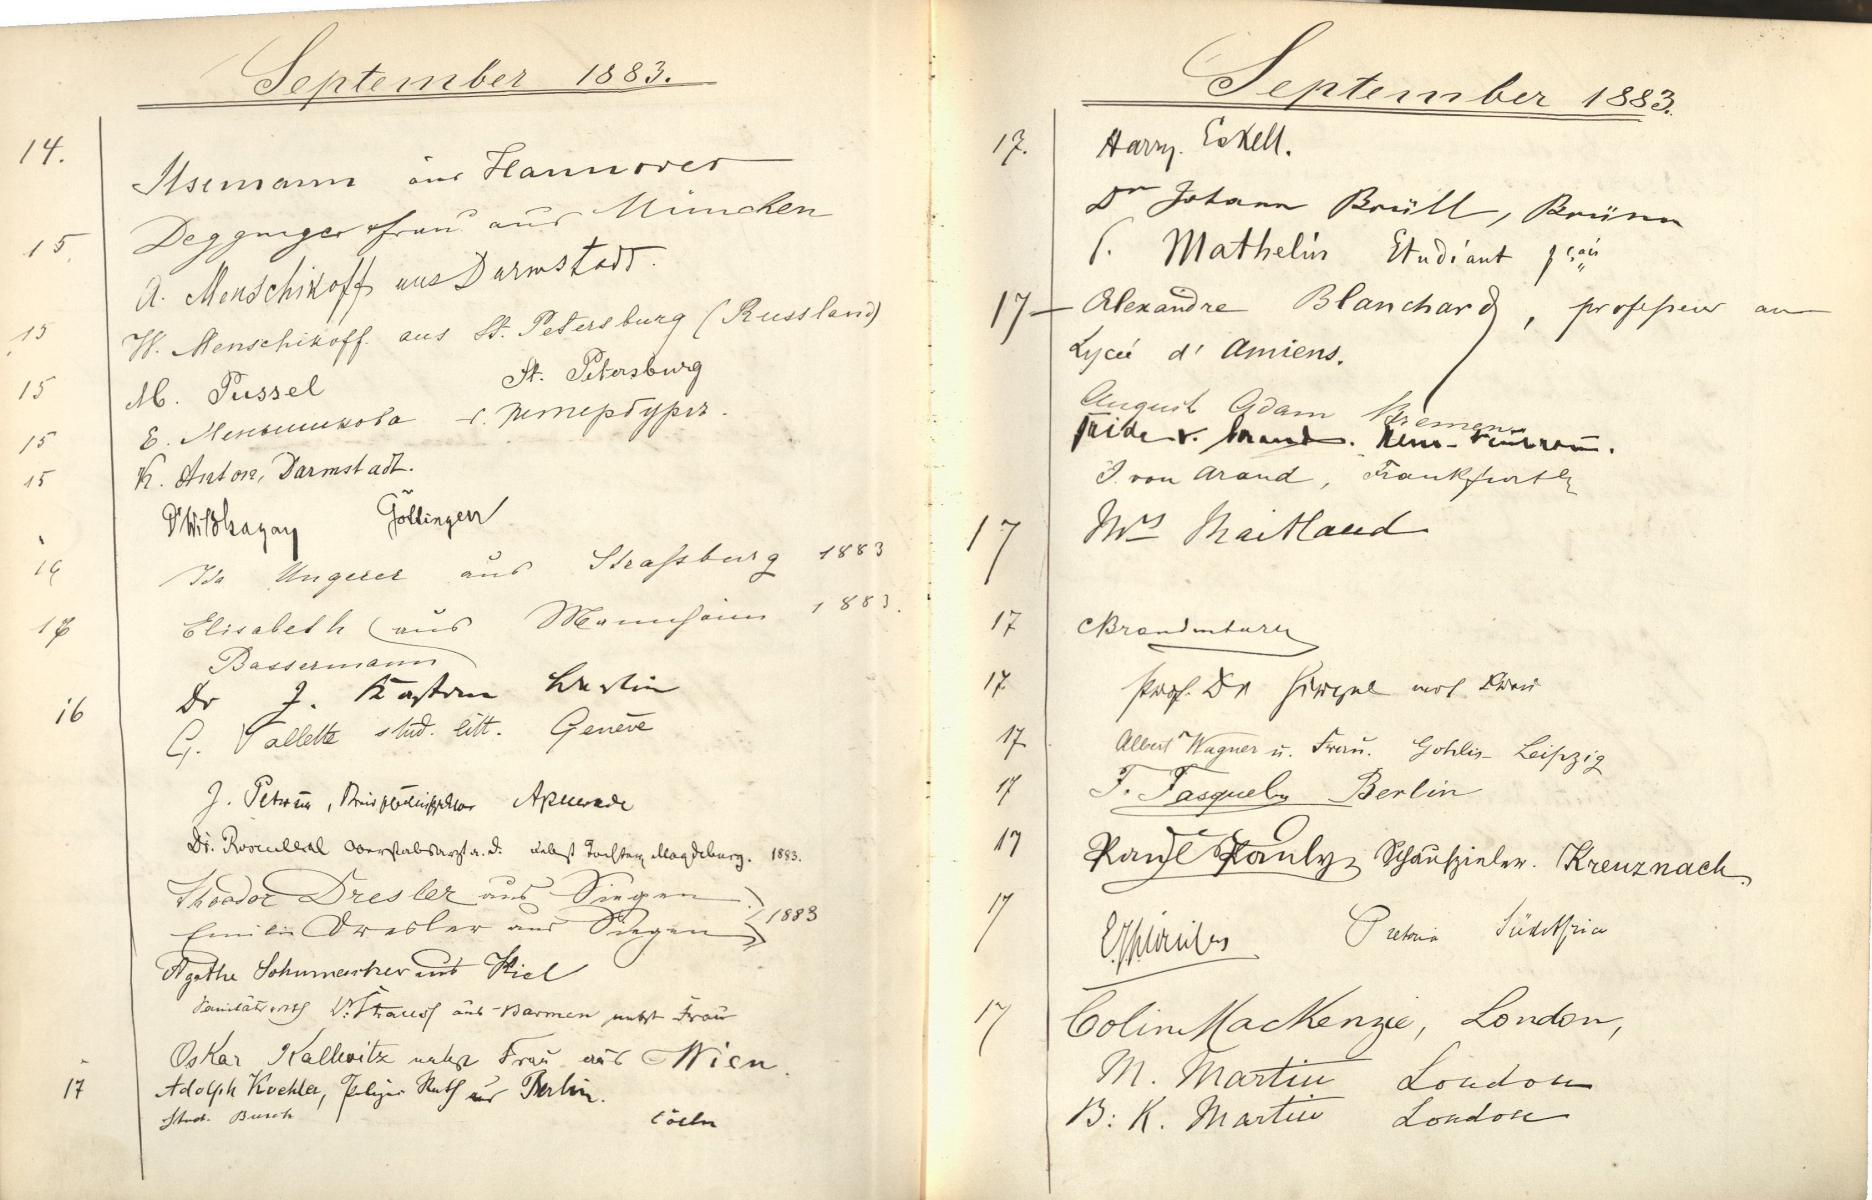 September 1883.
14. Ilsemann aus Hannover
Frau aus München
15. A. Menschikoff aus Darmstadt.
15 W. Menschikoff. aus St. Petersburg (Russland)
15 M. Pussel St. Petersburg
15 Е. Меньшикова с. Петербургъ.
15 K. Anton, Darmstadt.
Göttingen
Ida Ungerer aus Straßburg 1883
16 Elisabeth aus Mannheim 1883.
Bassermann
Dr J. Berlin
16 G. Vallette stud. litt. Genève
J.
Dr. Rosenthal Oberstabsarzt a. D. nebst Tochter Magdeburg. 1883.
Theodor Dresler aus Siegen
Emilie Dresler aus Siegen 1883
Agathe Schumacher aus Kiel
Sanitätsrath Dr. Strauß aus Barmen nebst Frau
Oskar Kallwitz nebst Frau aus Wien.
17 Adolph Koehler, Rath aus Berlin.
Stud. Busch Cöln
September 1883.
17. Harry. Eskell.
Dr Johann Brüll, Brünn
Mathelin Etudiant
17 Alexandre Blanchard, professeur au
Lycée d'Amiens.
August Adam Bremen
J. von Arand, Frankfurt
17 Mrs Maitland
17 Brandenburg
17 Prof. Dr
17 Albert Wagner u. Frau. Gohlis-Leipzig
17 Berlin
17 Paul Pauly Schauspieler. Kreuznach.
17 Pretoria Südafrica
17 Colin MacKenzie, London,
M. Martin London
B: K. Martin London